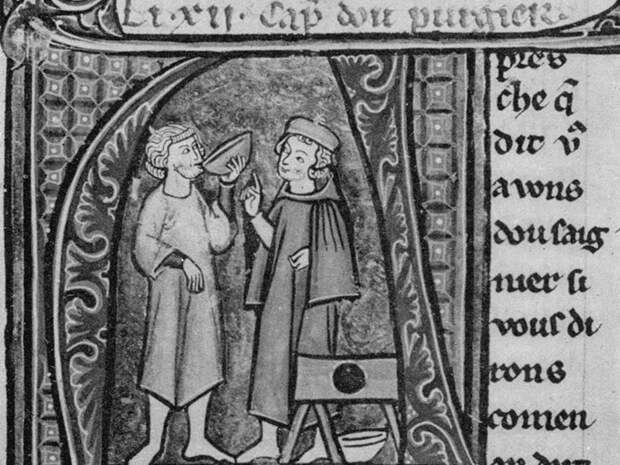 Li·xii· Cap̄ dou purgier
pres
che q̄
dit v̄
avons
dou saig
nier si
vous di
rons
comen